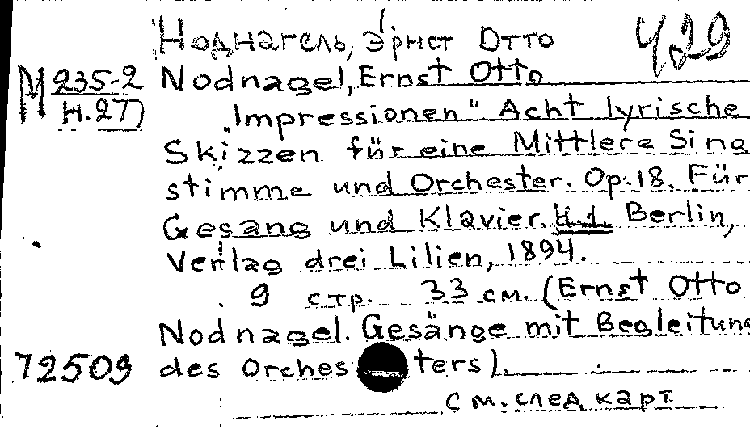 Ноднагель, Эрнст Отто 429
М 235-2 Nodnagel, Ernst Otto
Н.27) „Impressionen“ Acht lyrische
Skizzen für eine Mittlere Sing
stimme und Orchester. Op. 18. Für
Gesang und Klavier. H.1. Berlin,
Verlag drei Lilien, 1894.
9 стр. 33 см. (Ernst Otto
Nodnagel. Gesänge mit Begleitung
72509 des Orchesters).
См. след карт